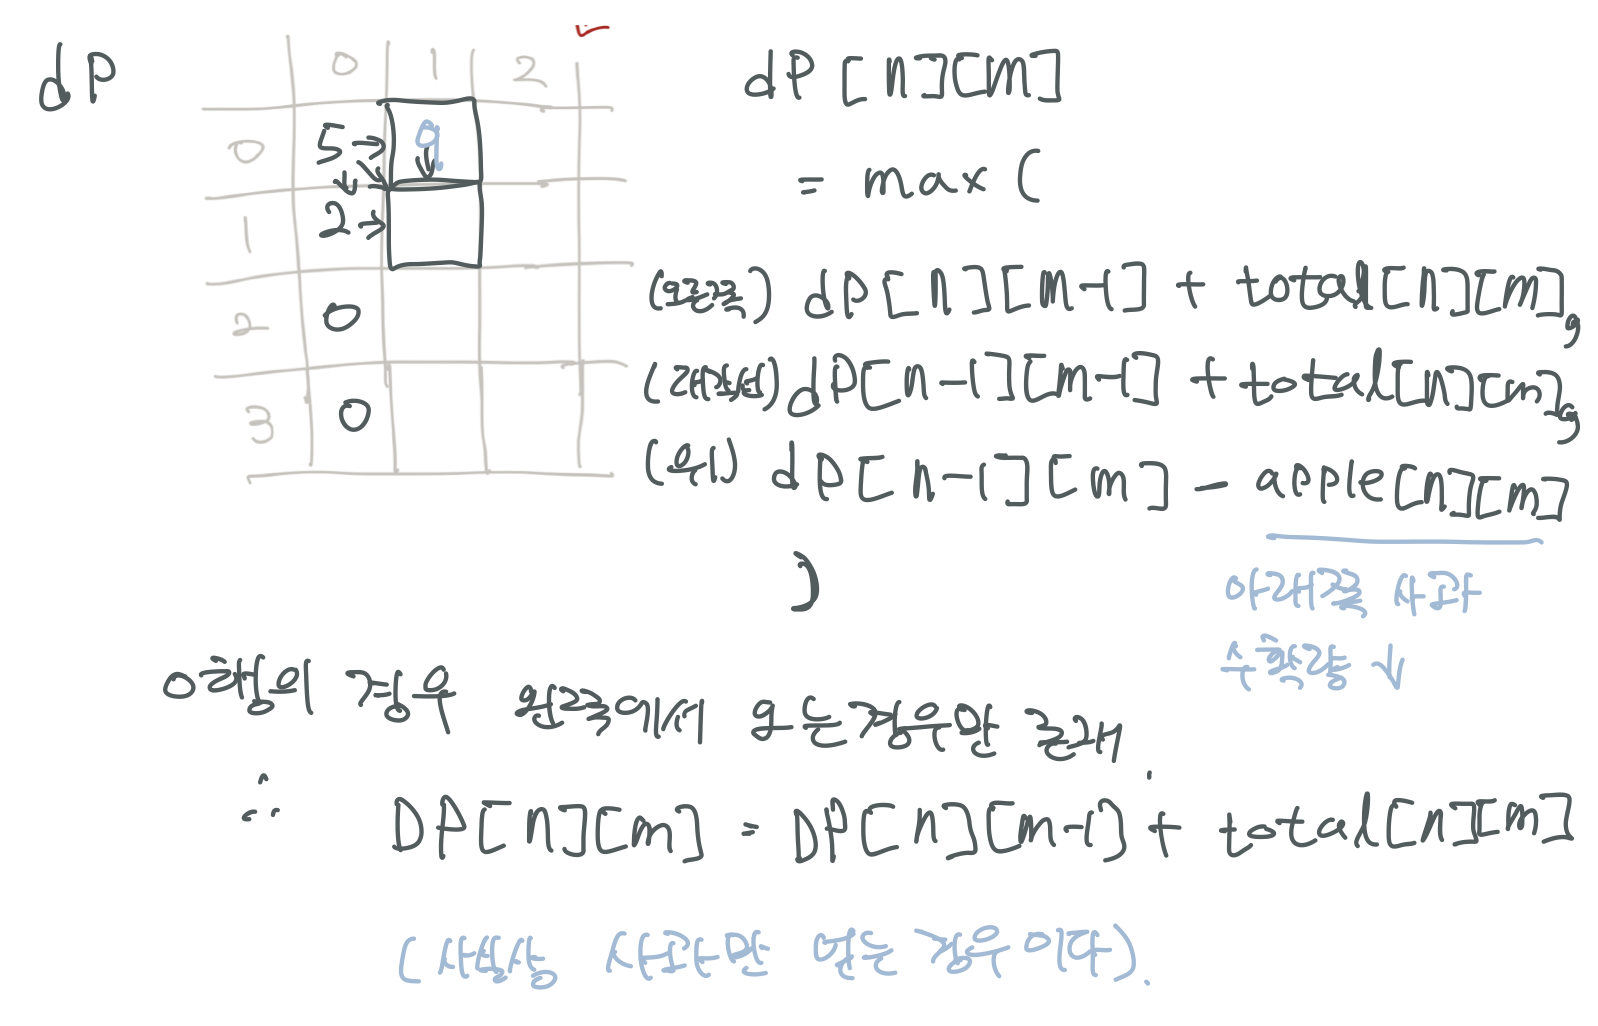 dP
0 1 2
0 5 9
1 2
2 0
3 0
dP[n][m]
= max(
(왼쪽) dP[n][m-1] + total[n][m],
(대각선) dP[n-1][m-1] + total[n][m],
(위) dP[n-1][m] - apple[n][m]
)
아래쪽 사과
수확량 ↓
0행의 경우 왼쪽에서 오는경우만 존재.
∴ DP[n][m] = DP[n][m-1] + total[n][m]
(사실상 사과만 얻는 경우이다).